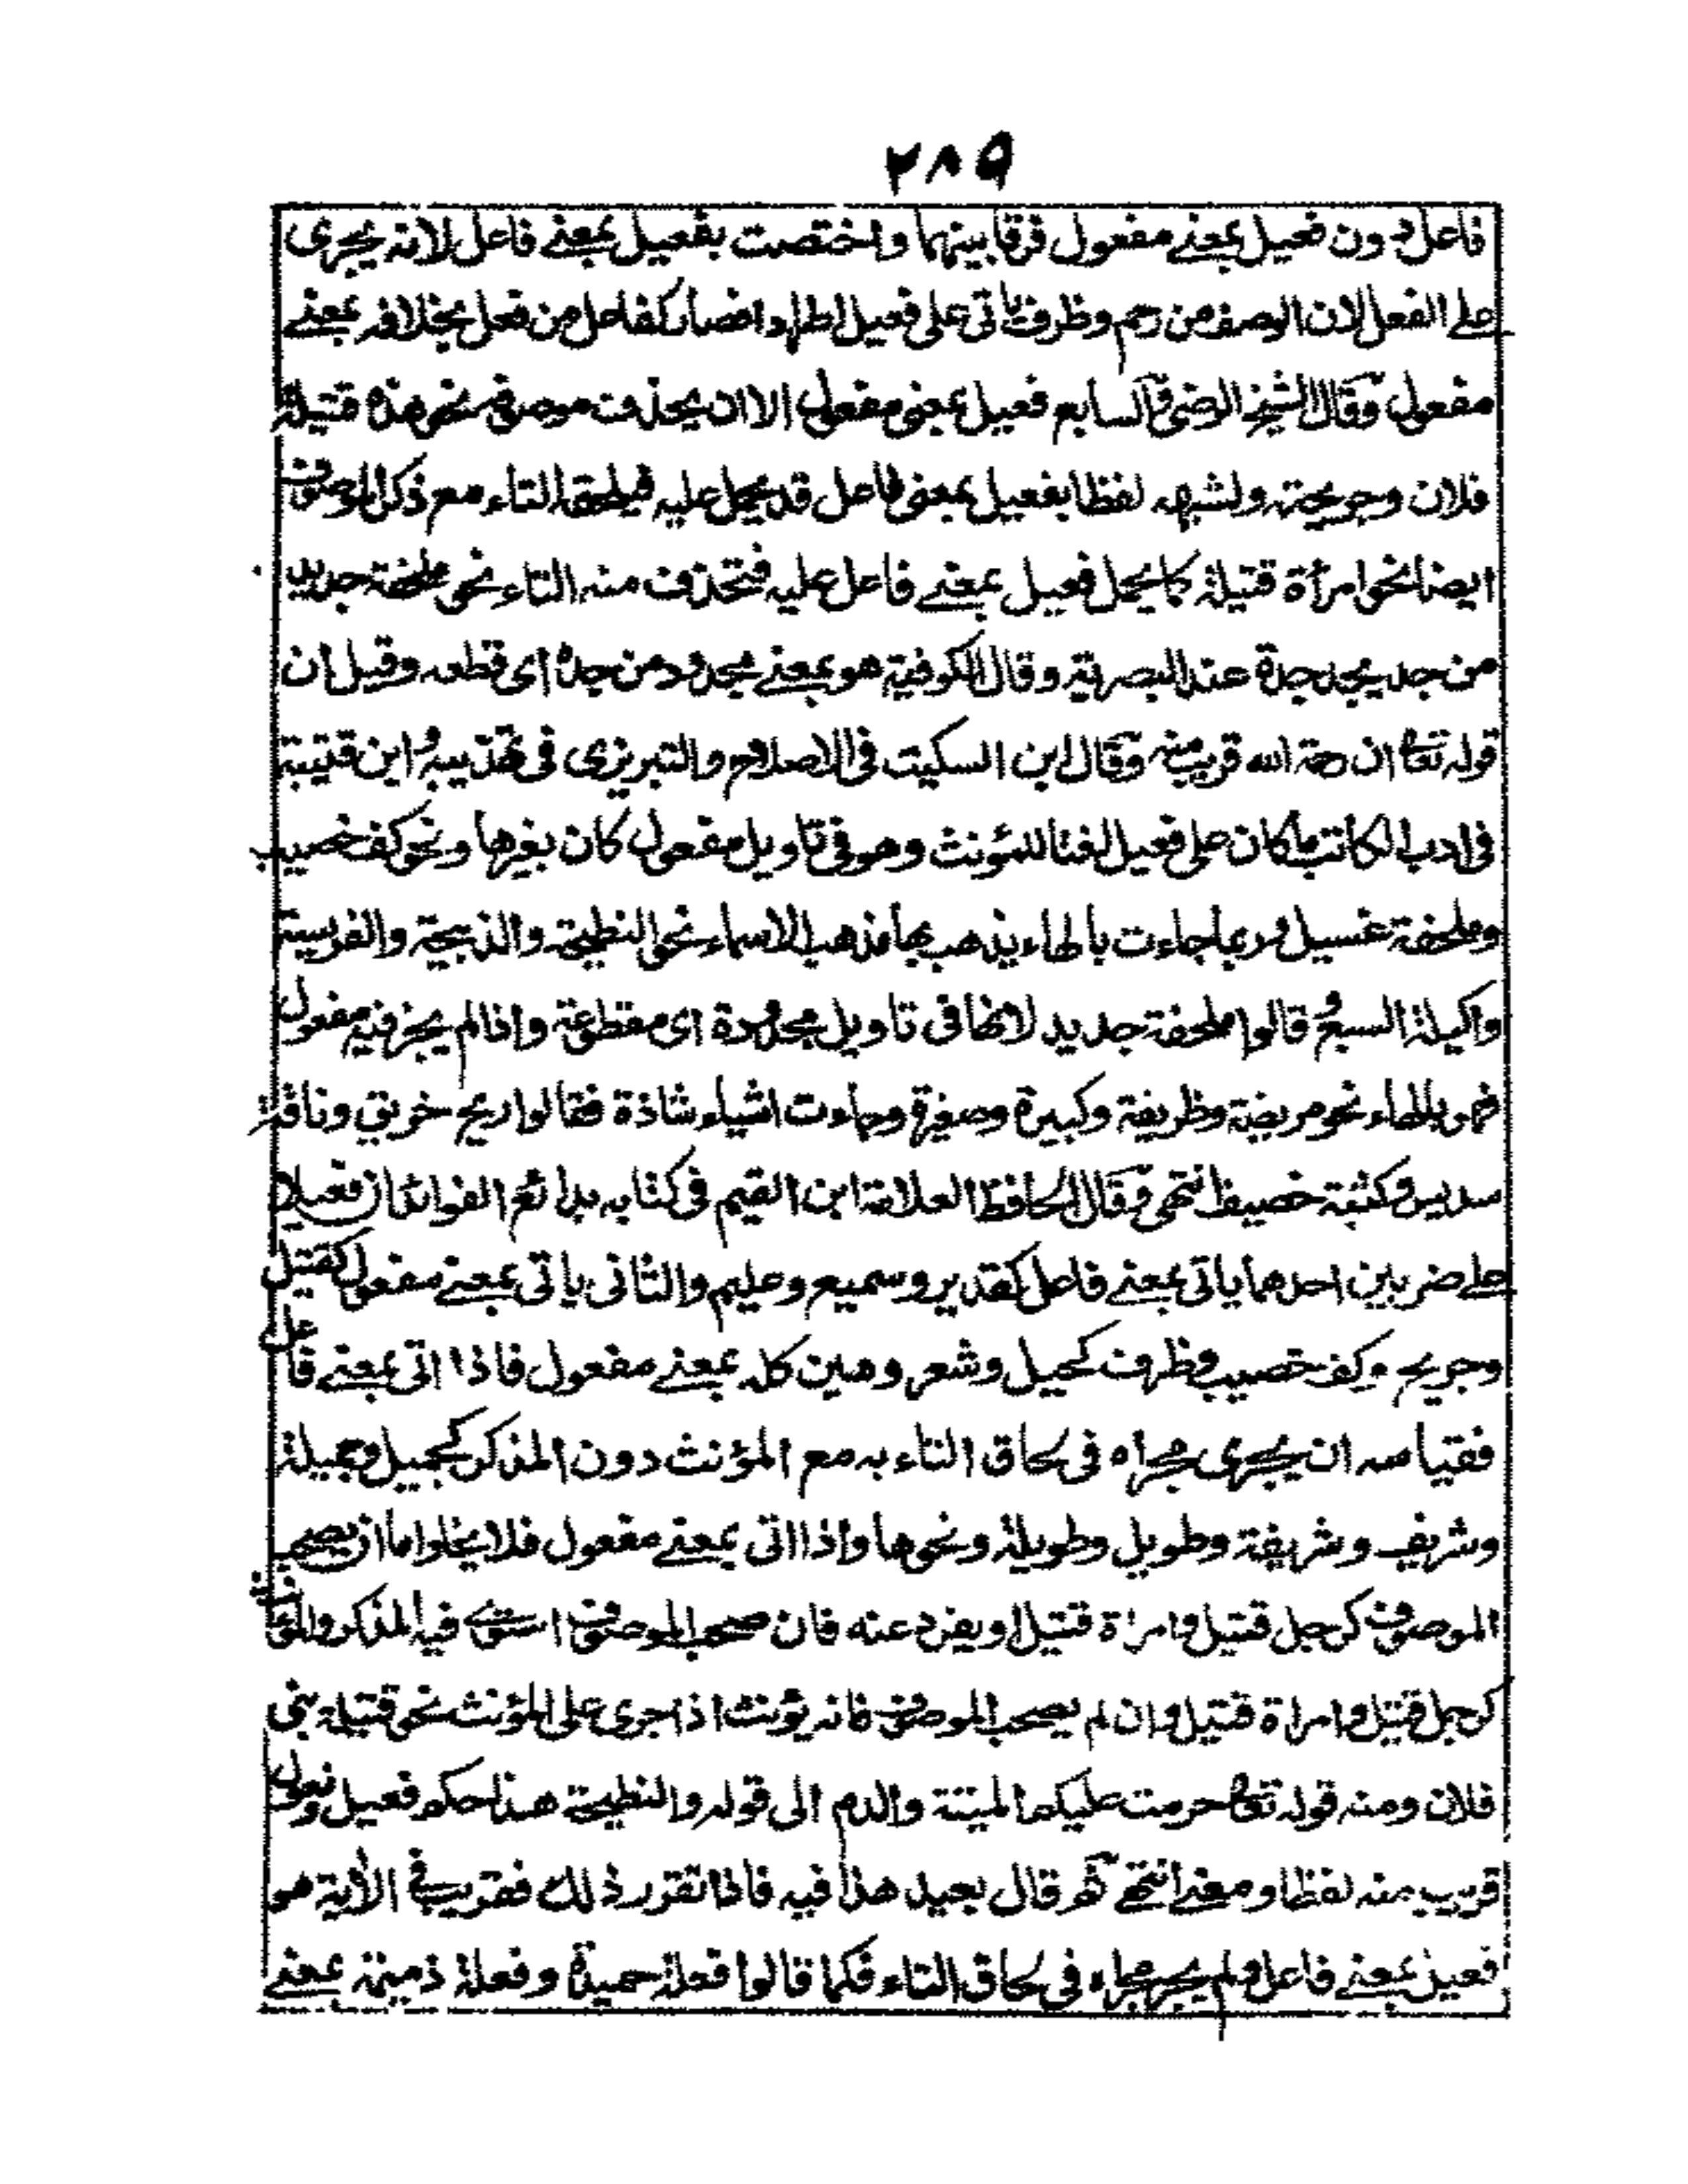 ٢٨٩
فاعل دون فعيل بمعنے مفعول فرقا بينهما واختصت بفعيل بمعنے فاعل لانه يجرى
علے الفعل لان الوصف من رحم وظرف ياتى على فعيل كفاعل من فعل بخلافه بمعنے
مفعول وقال الشيخ الرضى السابع فعيل بمعنى مفعول الا ان يحذف موصوفه نحو هذه قتيلة
فلان وجريحته ولشبهه لفظا بفعيل بمعنى فاعل قد يحمل عليه فيلحقه التاء مع ذكر الموصوف
ايضا نحو امرأة قتيلة كما يحمل فعيل بمعنے فاعل عليه فتحذف منه التاء نحو ملحفة جديد
من جد يجد جدة عند البصرية وقال الكوفية هو بمعنے مجدود من جده اى قطعه وقيل ان
قوله تعا ان رحمة الله قريب منه وقال ابن السكيت فى الاصلاح والتبريزى فى تهذيبه وابن قتيبة
فى ادب الكاتب ما كان على فعيل نعتا للمؤنث وهو فى تاويل مفعول كان بغيرها ونحو كف خصيب
وملحفة غسيل وربما جاءت بالهاء يذهب بها مذهب الاسماء نحو النطيحة والذبيحة والفريسة
واكيلة السبع وقالوا ملحفة جديد لانها فى تاويل مجدودة اى مقطوعة واذا لم يجز فيه مفعول
فهو بالهاء نحو مريضة وظريفة وكبيرة وصغيرة وجاءت اشياء شاذة فقالوا ريح خريق وناقة
سديس وكتيبة خصيف انتهى وقال الحافظ العلامة ابن القيم فى كتابه بدائع الفوائد ان فعيلا
علے ضربين احدهما ياتى بمعنے فاعل كقدير وسميع وعليم والثانى ياتى بمعنے مفعول كقتيل
وجريح وكف خصيب وطرف كحيل وشعر دهين كله بمعنے مفعول فاذا اتى بمعنے فاعل
فقياسه ان يجرى مجراه فى لحاق التاء به مع المؤنث دون المذكر كجميل وجميلة
وشريف وشريفة وطويل وطويلة ونحوها واذا اتى بمعنے مفعول فلا يخلوا ما ان يصحب
الموصوف كرجل قتيل وامراة قتيل او يفرد عنه فان صحب الموصوف استوے فيه المذكر والمؤنث
كرجل قتيل وامراة قتيل وان لم يصحب الموصوف فانه يؤنث اذا جرى على المؤنث نحو قتيلة بنى
فلان ومنه قوله تعا حرمت عليكم الميتة والدم الى قوله والنطيحة هذا حكم فعيل وفعول
قريب منه لفظا ومعنے انتهى ثم قال بعيد هذا فيه فاذا تقرر ذلك فقريب فى الآية هو
فعيل بمعنے فاعل ولم يجر مجراه فى لحاق التاء فكما قالوا فعلة حميدة وفعلة ذميمة بمعنے